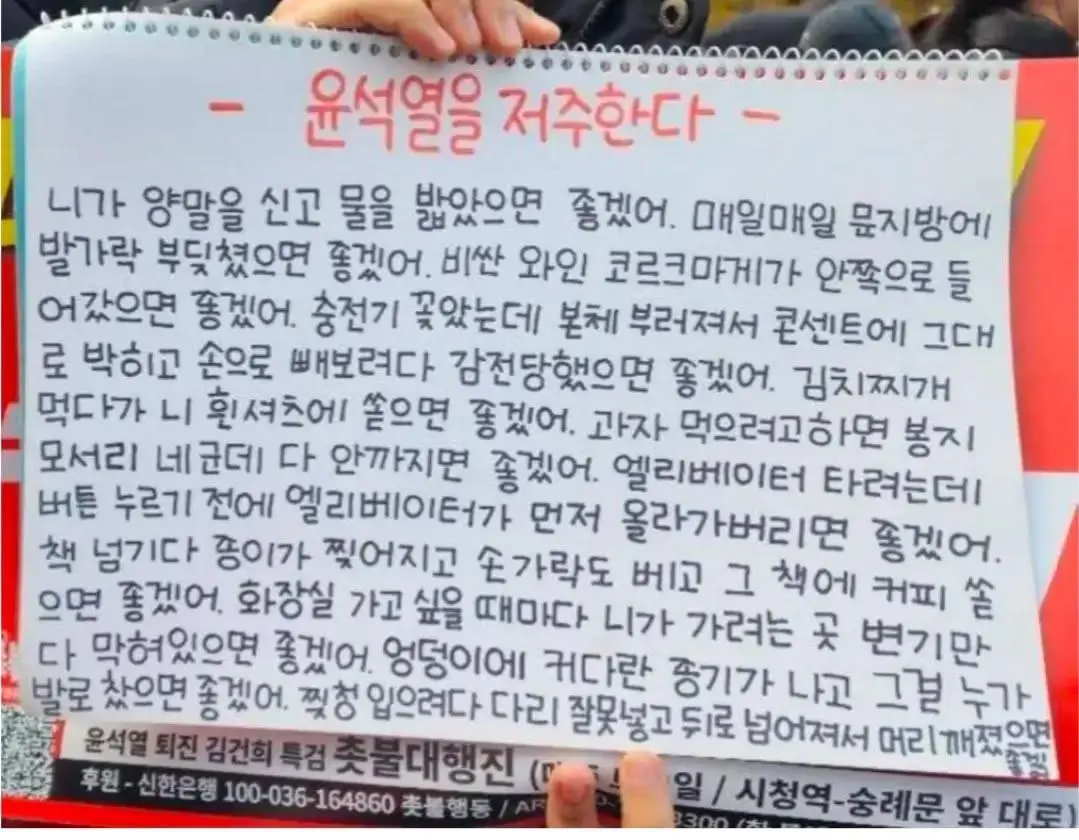 - 윤석열을 저주한다 -
니가 양말을 신고 물을 밟았으면 좋겠어. 매일매일 문지방에
발가락 부딪쳤으면 좋겠어. 비싼 와인 코르크마게가 안쪽으로 들
어갔으면 좋겠어. 충전기 꽂았는데 본체 부러져서 콘센트에 그대
로 박히고 손으로 빼보려다 감전당했으면 좋겠어. 김치찌개
먹다가 니 흰셔츠에 쏟으면 좋겠어. 과자 먹으려고하면 봉지
모서리 네군데 다 안까지면 좋겠어. 엘리베이터 타려는데
버튼 누르기 전에 엘리베이터가 먼저 올라가버리면 좋겠어.
책 넘기다 종이가 찢어지고 손가락도 베고 그 책에 커피 쏟
으면 좋겠어. 화장실 가고 싶을 때마다 니가 가려는 곳 변기만
다 막혀있으면 좋겠어. 엉덩이에 커다란 종기가 나고 그걸 누가
발로 찼으면 좋겠어. 찢청 입으려다 다리 잘못넣고 뒤로 넘어져서 머리 깨졌으면
윤석열 퇴진 김건희 특검 촛불대행진 ( 일 / 시청역-숭례문 앞 대로)
후원 - 신한은행 100-036-164860 촛불행동 /